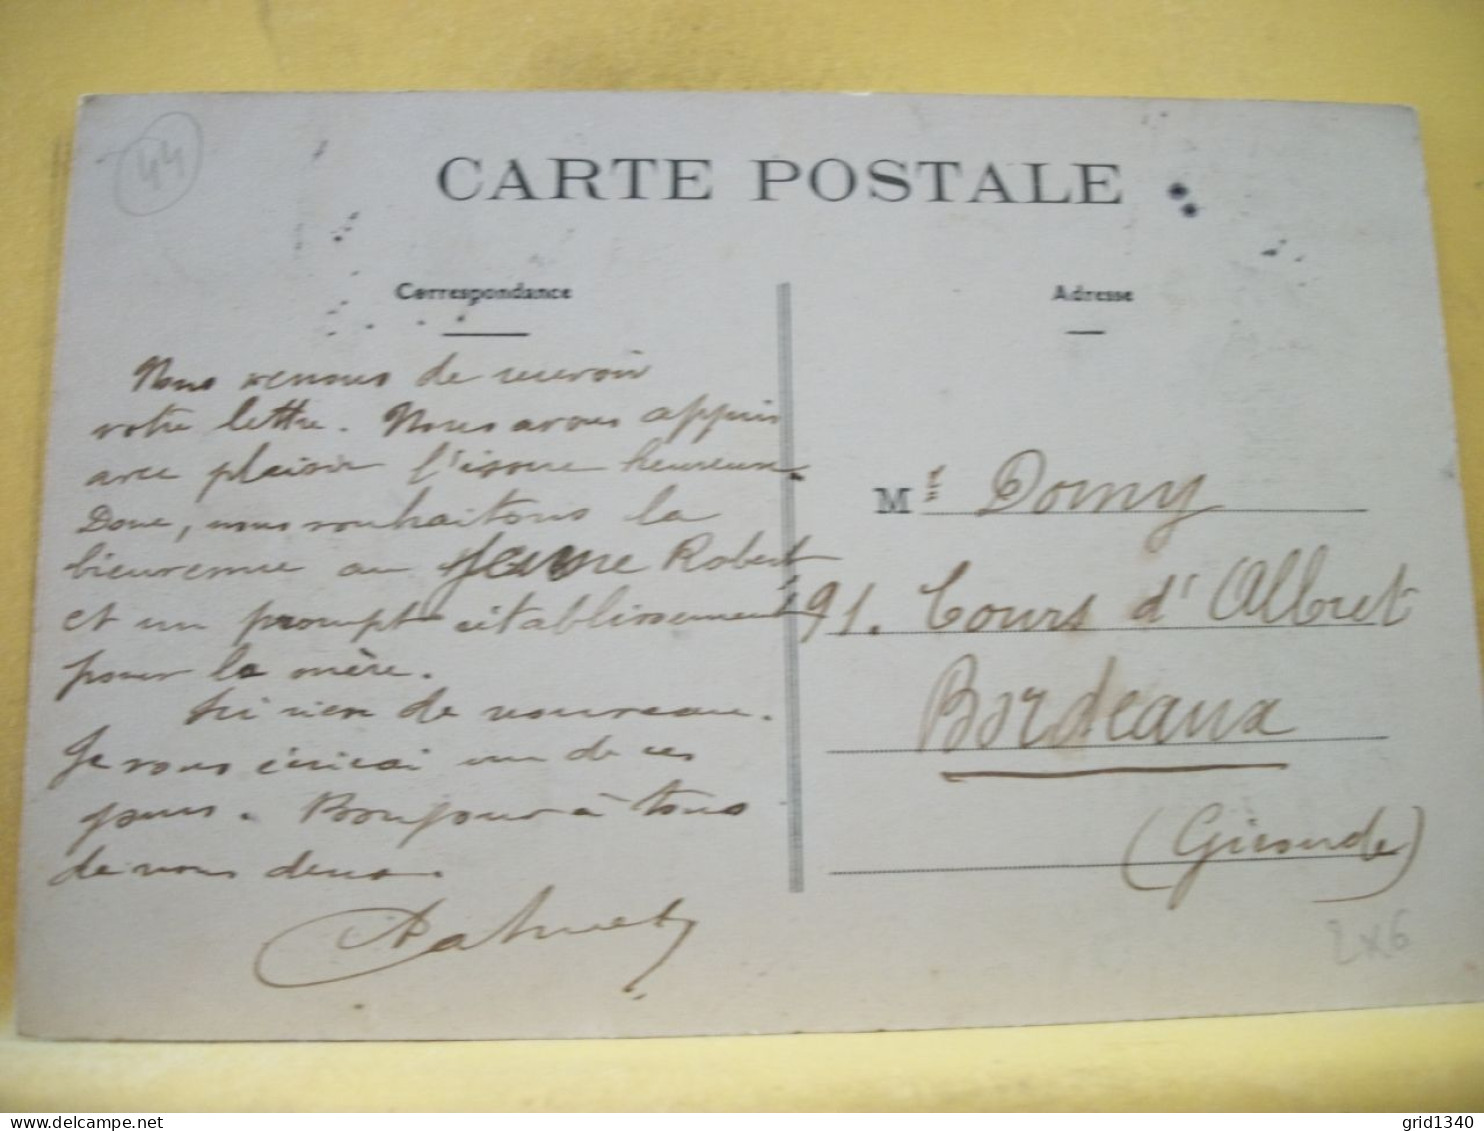 44
CARTE POSTALE
Correspondance
Adresse
Nous venons de recevoir
votre lettre. Nous avons appris
avec plaisir l'issue heureuse.
Donc, nous souhaitons la
bienvenue au jeune Robert
et un prompt rétablissement
pour la mère.
Ici rien de nouveau.
Je vous écrirai un de ces
jours. Bonjour à tous
de nous deux.
Mr Domy
91. Cours d'Albret
Bordeaux
(Gironde)
2x6
grid1340